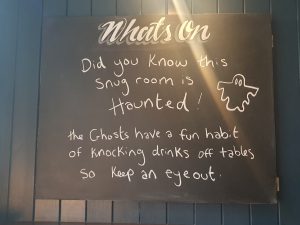 What's On
Did you Know this
Snug room is
Haunted!
the Ghosts have a fun habit
of Knocking drinks off tables
So Keep an eye out.